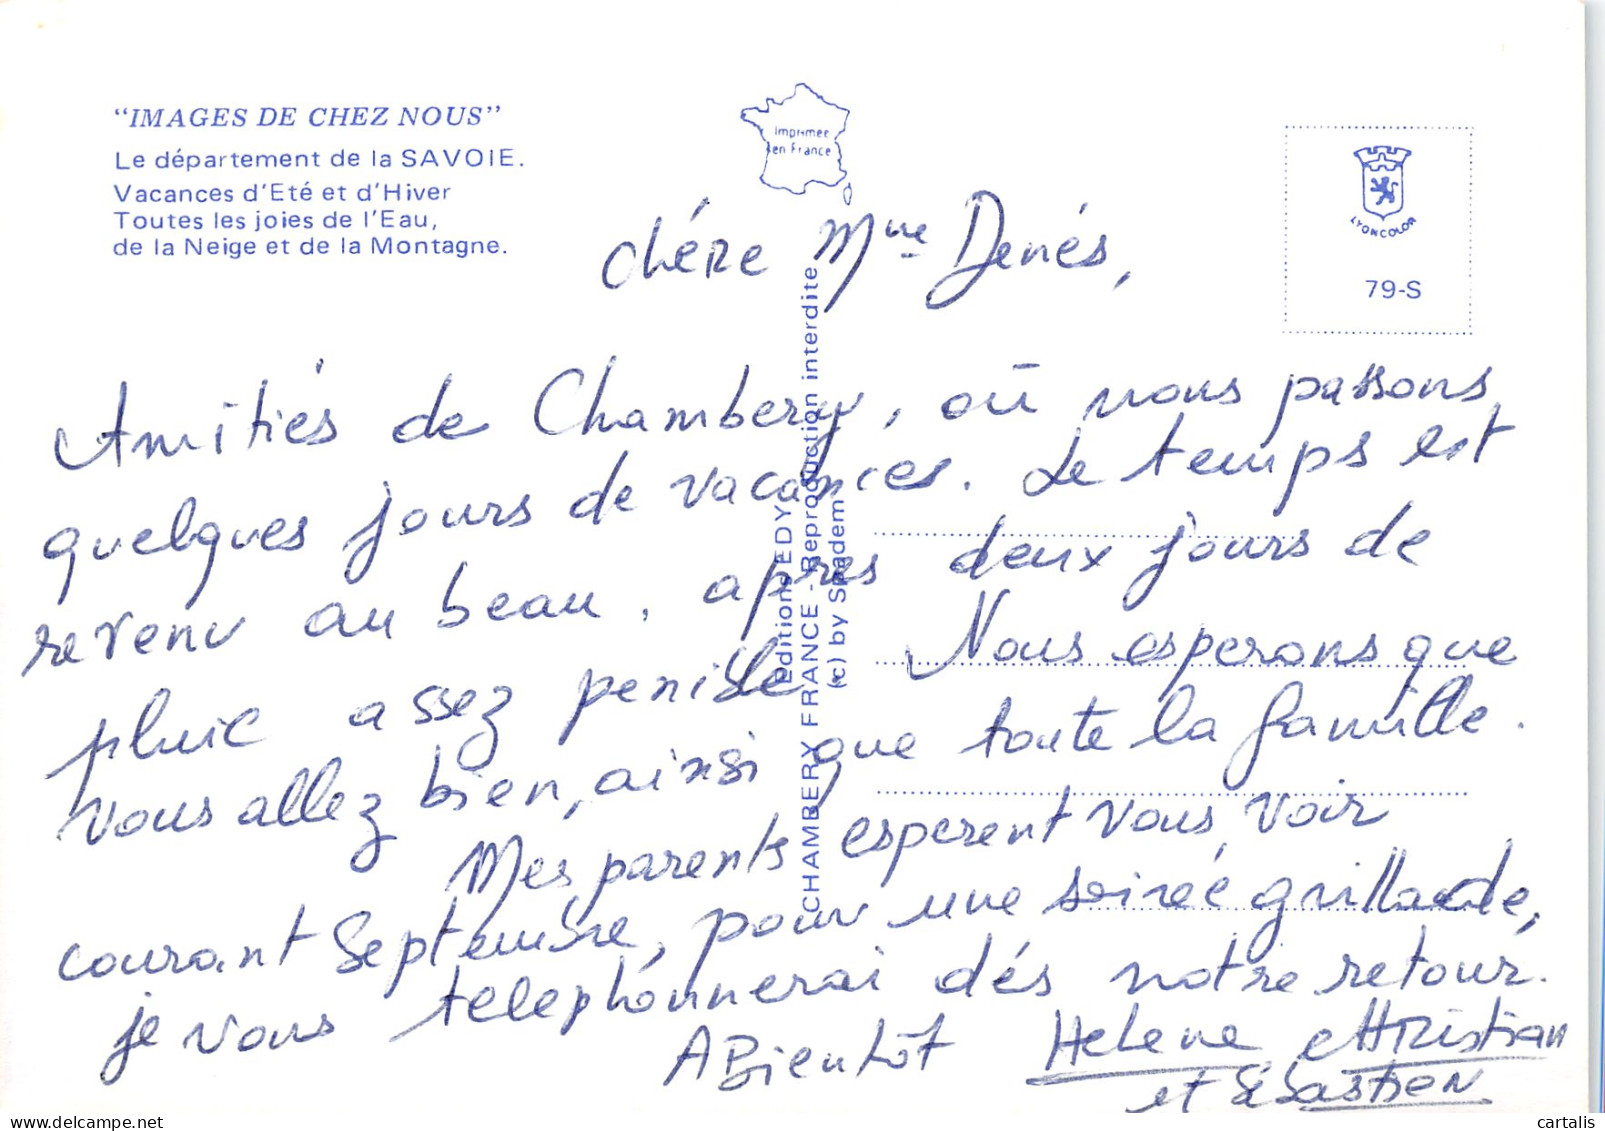 "IMAGES DE CHEZ NOUS"
Le département de la SAVOIE.
Vacances d'Eté et d'Hiver
Toutes les joies de l'Eau,
de la Neige et de la Montagne.
Imprimée
en France
LYONCOLOR
79-S
Editions EDY
CHAMBERY FRANCE - Reproduction interdite
(c) by Spadem
Chére Mme Denés,
Amitiés de Chambery, où nous passons
quelques jours de vacances. Le temps est
revenu au beau, après deux jours de
pluie assez penible. Nous esperons que
vous allez bien, ainsi que toute la famille.
Mes parents esperent vous voir
courant Septembre, pour une soirée grillade,
je vous telephonnerai dés notre retour.
A Bientôt Helene Christian
et Sébastien
cartalis